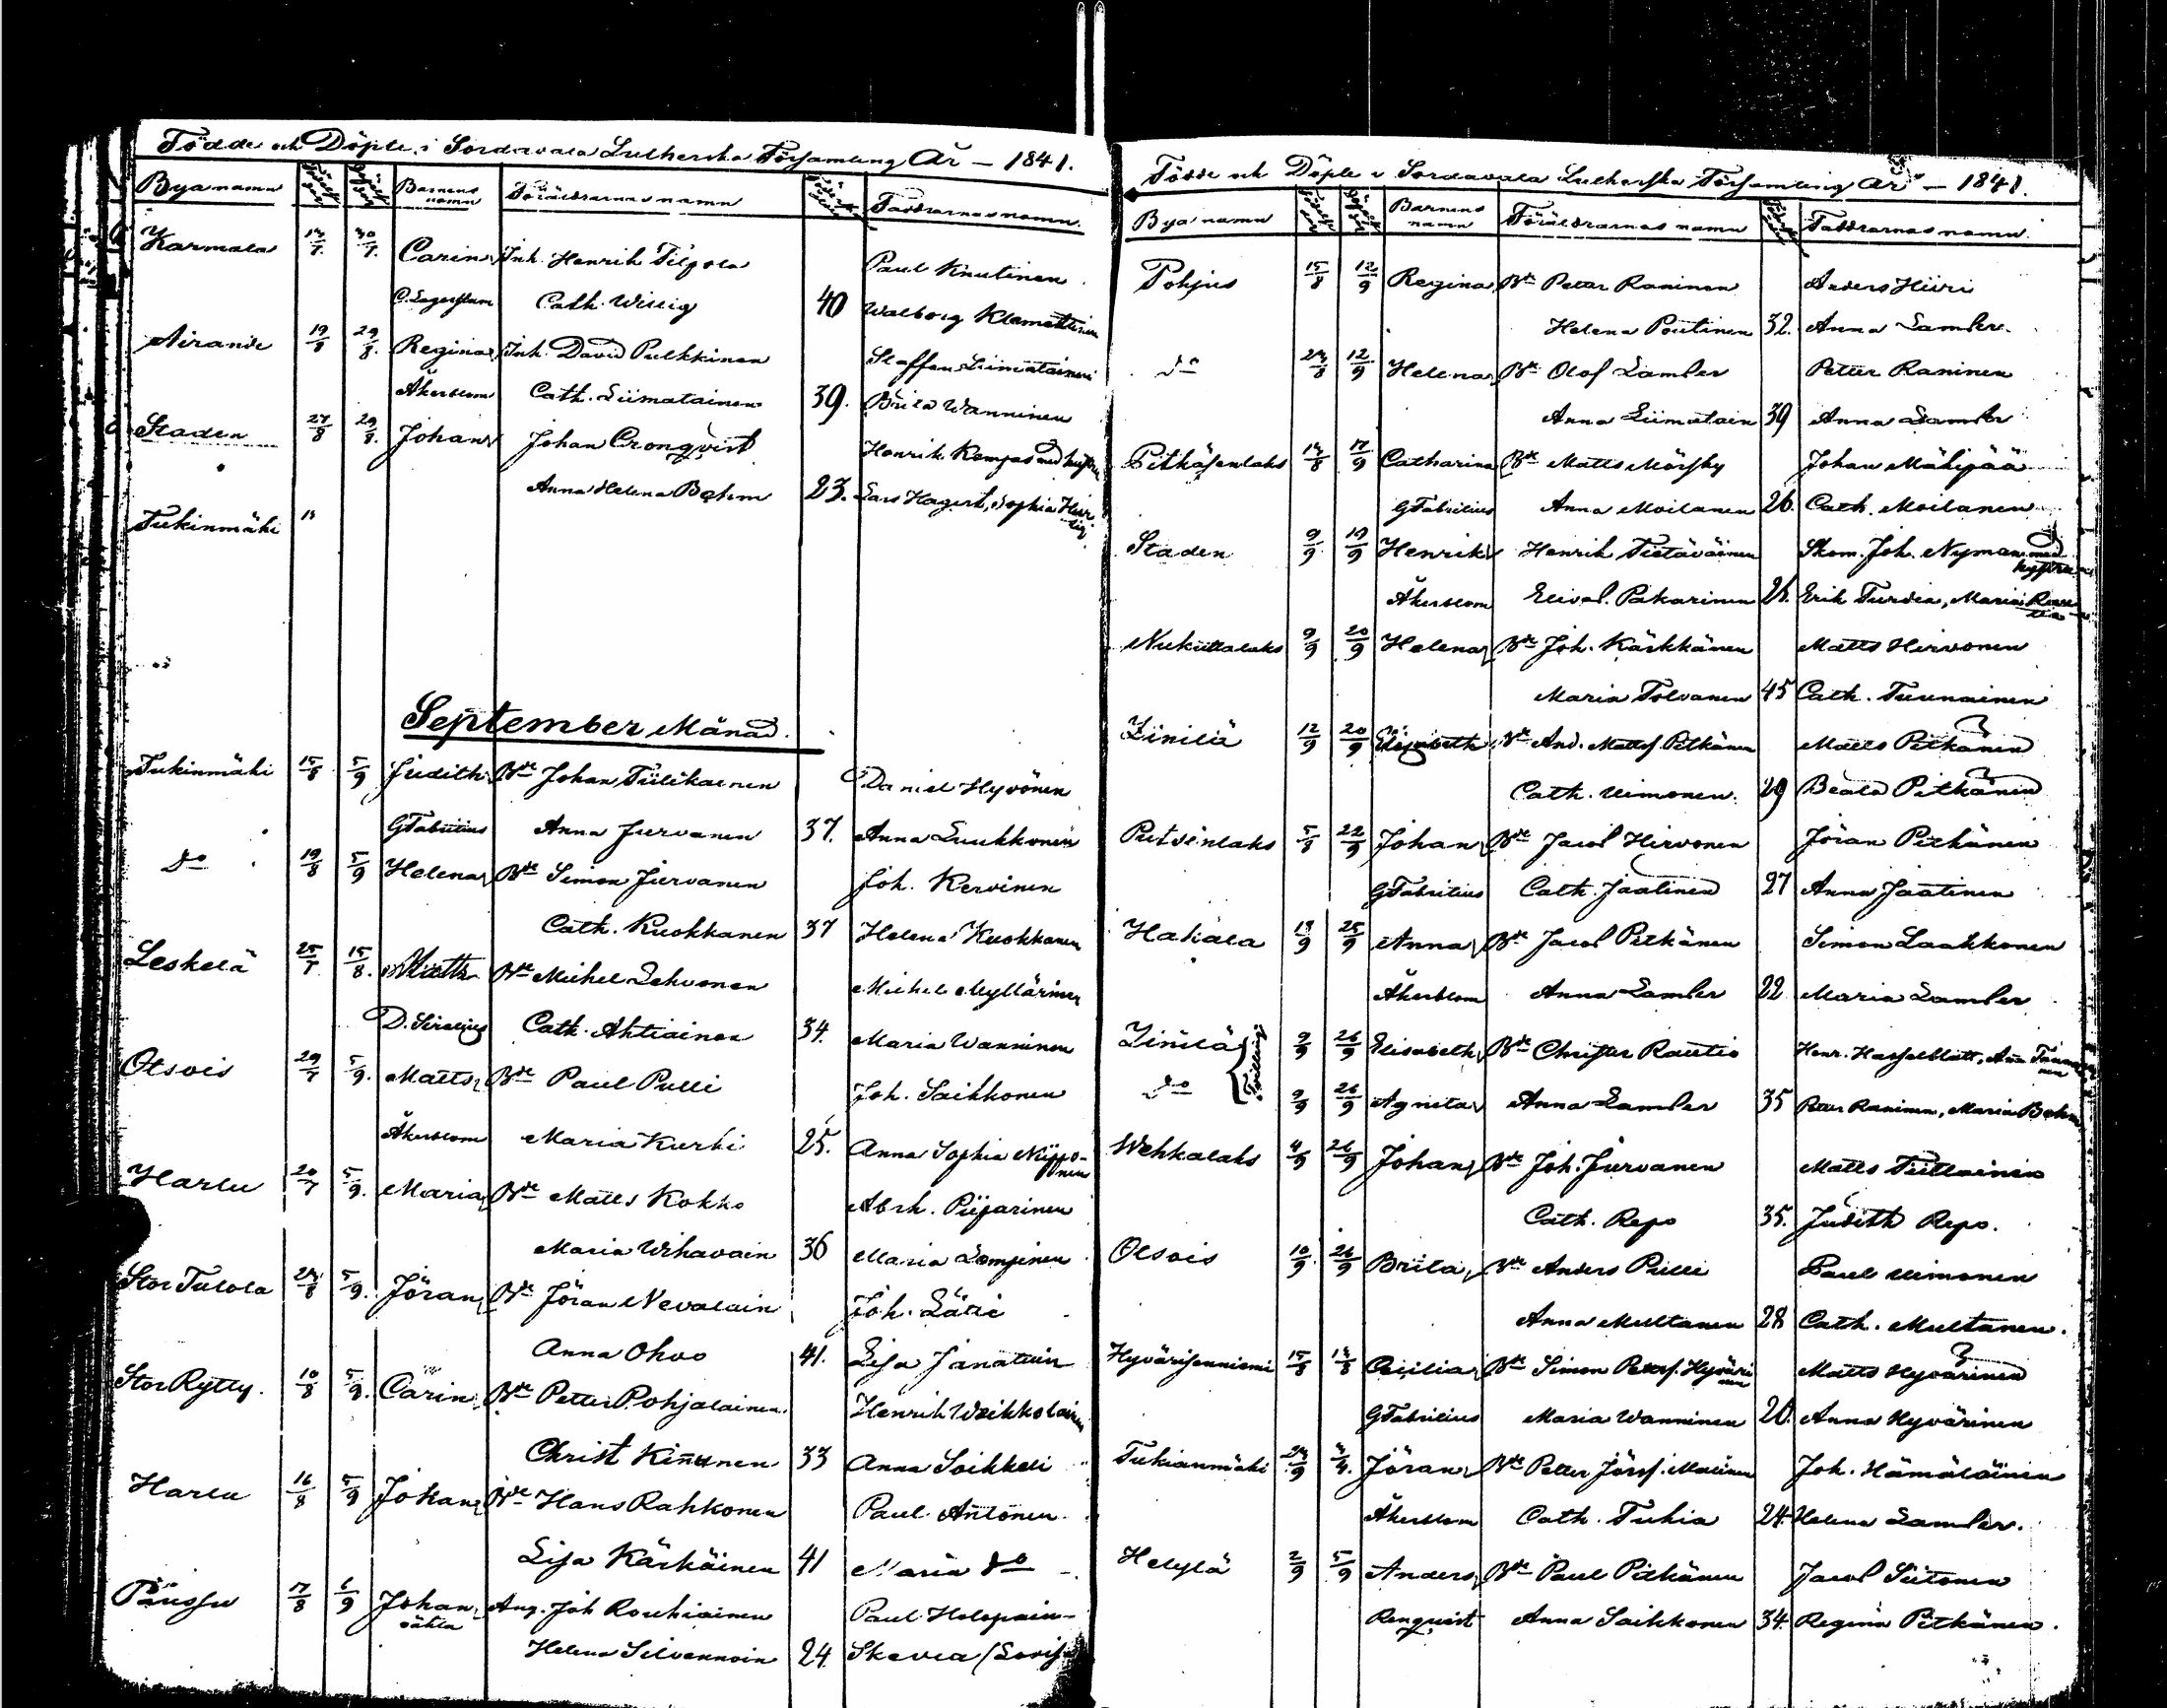 Födde och Döpte i Sordavala Lutherska Församling År – 1841.
Byanamn Barnens namn Föräldrarnas namn Faddrarnas namn.
Karmala 30/7. Carin Inh. Henrik Tilpola Paul Knutinen
Cath. Willig 40 Walborg Klemettinen
Airanne 19/8 29/8. Regina Inh. David Pulkkinen Staffan Liimatainen
Åkerblom Cath. Liimatainen 39. Brita Wanninen
Staden 27/8 29/8. Johan Johan Cronqvist Henrik Kempas med hustru
Anna Helena Bohm 23. Lars Hagert, Sophia
Tukinmäki
September Månad.
Tukinmäki 15/8 5/9 Judith Bde Johan Tiilikainen Daniel Hyvönen
GFabritius Anna Jurvanen 37. Anna Luukkonen
do 19/8 5/9 Helena Bde Simon Jurvanen Joh. Kervinen
Cath. Kuokkanen 37 Helena Kuokkanen
Leskelä 25/7 15/8. Matts Bde Michel Lehvonen Michel Myllärinen
D. Sirelius Cath. Ahtiainen 34. Maria Wanninen
Otsois 29/7 5/9. Matts Bde Paul Pulli Joh. Saikkonen
Åkerblom Maria Kurki 25. Anna Sophia Nipponen
Harlu 20/7 5/9. Maria Bde Matts Kokko Abrh. Piiparinen
Maria Wihavain 36 Maria Lampinen
Stor Tulola 24/8 5/9. Jöran Bde Jöran Nevalain Joh. Lätti
Anna Ohvo 41. Lisa Janatuin
Stor Rytty. 10/8 5/9. Carin Bde Petter Pohjalainen. Henrik Weikkolainen
Christ Kinnunen 33 Anna Soikkeli
Harlu 16/8 5/9 Johan Bde Hans Rahkonen Paul Antonen
Lisa Kärkäinen 41 Maria do
Pänssu 17/8 6/9 Johan Ang. Joh Rouhiainen Paul Holopain
oäkta Helena Silvennoin 24.
Födde och Döpte i Sordavala Lutherska Församling År – 1841.
Byanamn Barnens namn Föräldrarnas namn Faddrarnas namn.
Pohjus 15/8 12/9 Regina Bde Petter Raninen Anders Hiiri
Helena Poutinen 32. Anna Lamber.
do 24/8 12/9 Helena Bde Olof Lamber Petter Raninen
Anna Liimatain 39 Anna Lamber
Pitkäsenlaks 14/8 17/9 Catharina Bde Matts Mörsky Johan Mäkipää
GFabritius Anna Moilanen 26. Cath. Moilanen
Staden 9/9 19/9 Henrik Henrik Tietäväinen Skom. Joh. Nyman med hustru
Åkerblom Elisab. Pakarinen 26. Erik Turdia, Maria
Nukuttalaks 9/9 20/9 Helena Bde Joh. Kärkkänen Matts Hirvonen
Maria Tolvanen 45 Cath. Tuunainen
Liinilä 12/9 20/9 Elisabeth Bde And. Mattsf. Pitkänen Matts Pitkänen
Cath. Uimonen. 29 Beata Pitkänen
Putsinlaks 5/8 22/9 Johan Bde Jacob Hirvonen Jöran Pitkänen
GFabritius Cath. Jaatinen 27 Anna Jaatinen
Hakala 19/9 25/9 Anna Bde Jacob Pitkänen Simon Laakkonen
Åkerblom Anna Lamber 22 Maria Lamber
Liinilä 9/9 26/9 Elisabeth Bde Christer Rautio Henr. Hasselblatt, Ann
do Tvillingr 9/9 26/9 Agneta Anna Lamber 35 Petter Raninen, Maria Bohm
Wehkalaks 4/9 26/9 Johan Bde Joh. Jurvanen Matts Tiittainen
Cath. Repo 35. Judith Repo.
Otsois 10/9. 26/9 Brita Bde Anders Pulli Paul Uimonen
Anna Multanen 28 Cath. Multanen.
Hyvärisenniemi 15/8 Cecilia Bde Simon Pettersf. Hyvärinen Matts Hyvärinen
GFabritius Maria Wanninen 20. Anna Hyvärinen
Tukianmäki Jöran Bde Petter Jörsf. Matinen Joh. Hämäläinen
Åkerblom Cath. Tukia 24. Helena Lamber.
Helylä 2/9 5/9 Anders Bde Paul Pitkänen Jacob Siitonen
Renqvist Anna Saikkonen 34. Regina Pitkänen.